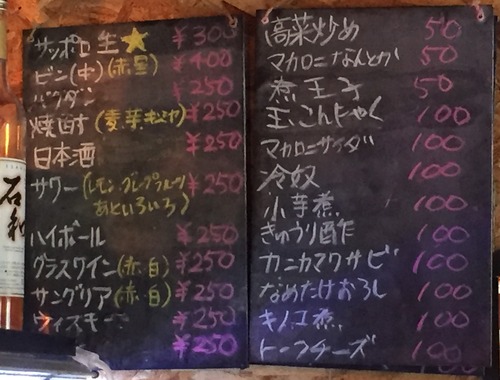 サッポロ生★ ¥300
ビン(中)(赤星) ¥400
バクダン ¥250
焼酎(麦 芋 キンミヤ) ¥250
日本酒 ¥250
サワー(レモン、グレープフルーツ ¥250
あといろいろ)
ハイボール ¥250
グラスワイン(赤・白) ¥250
サングリア(赤・白) ¥250
ウィスキー ¥250
¥250
高菜炒め 50
マカロニなんとか 50
煮玉子 50
玉こんにゃく 100
マカロニサラダ 100
冷奴 100
小芋煮 100
きゅうり酢 100
カニカマワサビ 100
なめたけおろし 100
キノコ煮 100
トーフチーズ 100
石和